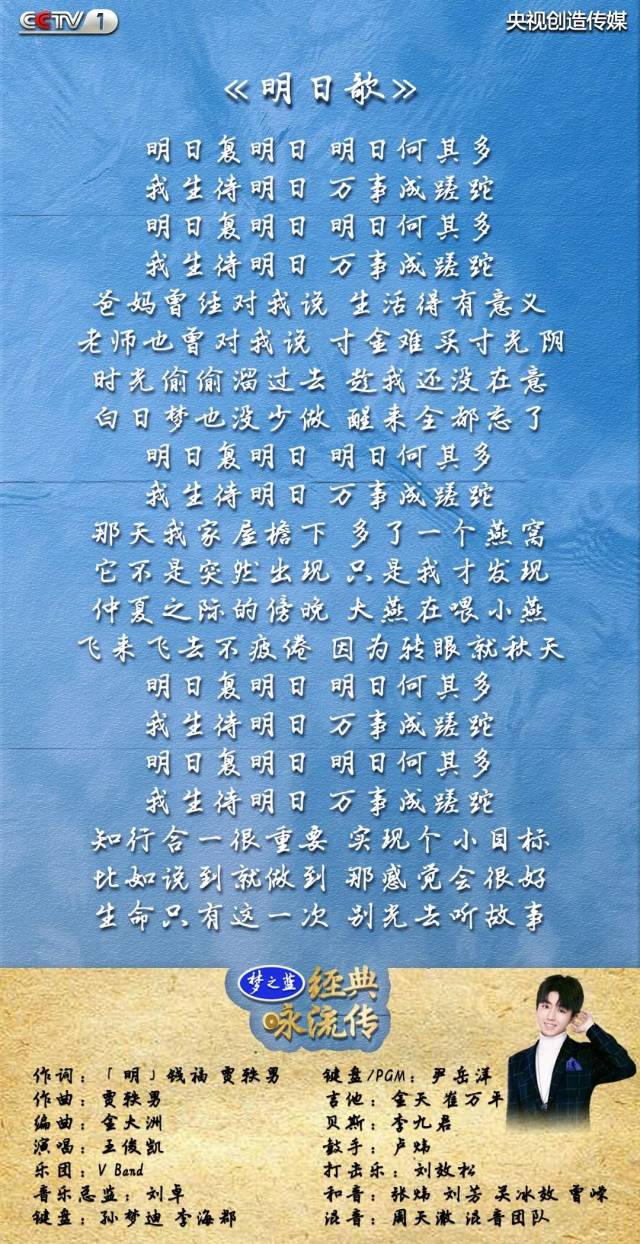 CCTV 1
央视创造传媒
《明日歌》
明日复明日 明日何其多
我生待明日 万事成蹉跎
明日复明日 明日何其多
我生待明日 万事成蹉跎
爸妈曾经对我说 生活得有意义
老师也曾对我说 寸金难买寸光阴
时光偷偷溜过去 趁我还没在意
白日梦也没少做 醒来全都忘了
明日复明日 明日何其多
我生待明日 万事成蹉跎
那天我家屋檐下 多了一个燕窝
它不是突然出现 只是我才发现
仲夏之际的傍晚 大燕在喂小燕
飞来飞去不疲倦 因为转眼就秋天
明日复明日 明日何其多
我生待明日 万事成蹉跎
明日复明日 明日何其多
我生待明日 万事成蹉跎
知行合一很重要 实现个小目标
比如说到就做到 那感觉会很好
生命只有这一次 别光去听故事
梦之蓝 经典
咏流传
作词：「明」钱福 贾轶男
作曲：贾轶男
编曲：金大洲
演唱：王俊凯
乐团：V Band
音乐总监：刘卓
键盘：孙梦迪 李海郡
键盘/PGM：尹岳洋
吉他：金天 崔万平
贝斯：李九君
鼓手：卢炜
打击乐：刘效松
和音：张炜 刘芳 吴冰效 雷嵘
混音：周天澈 混音团队